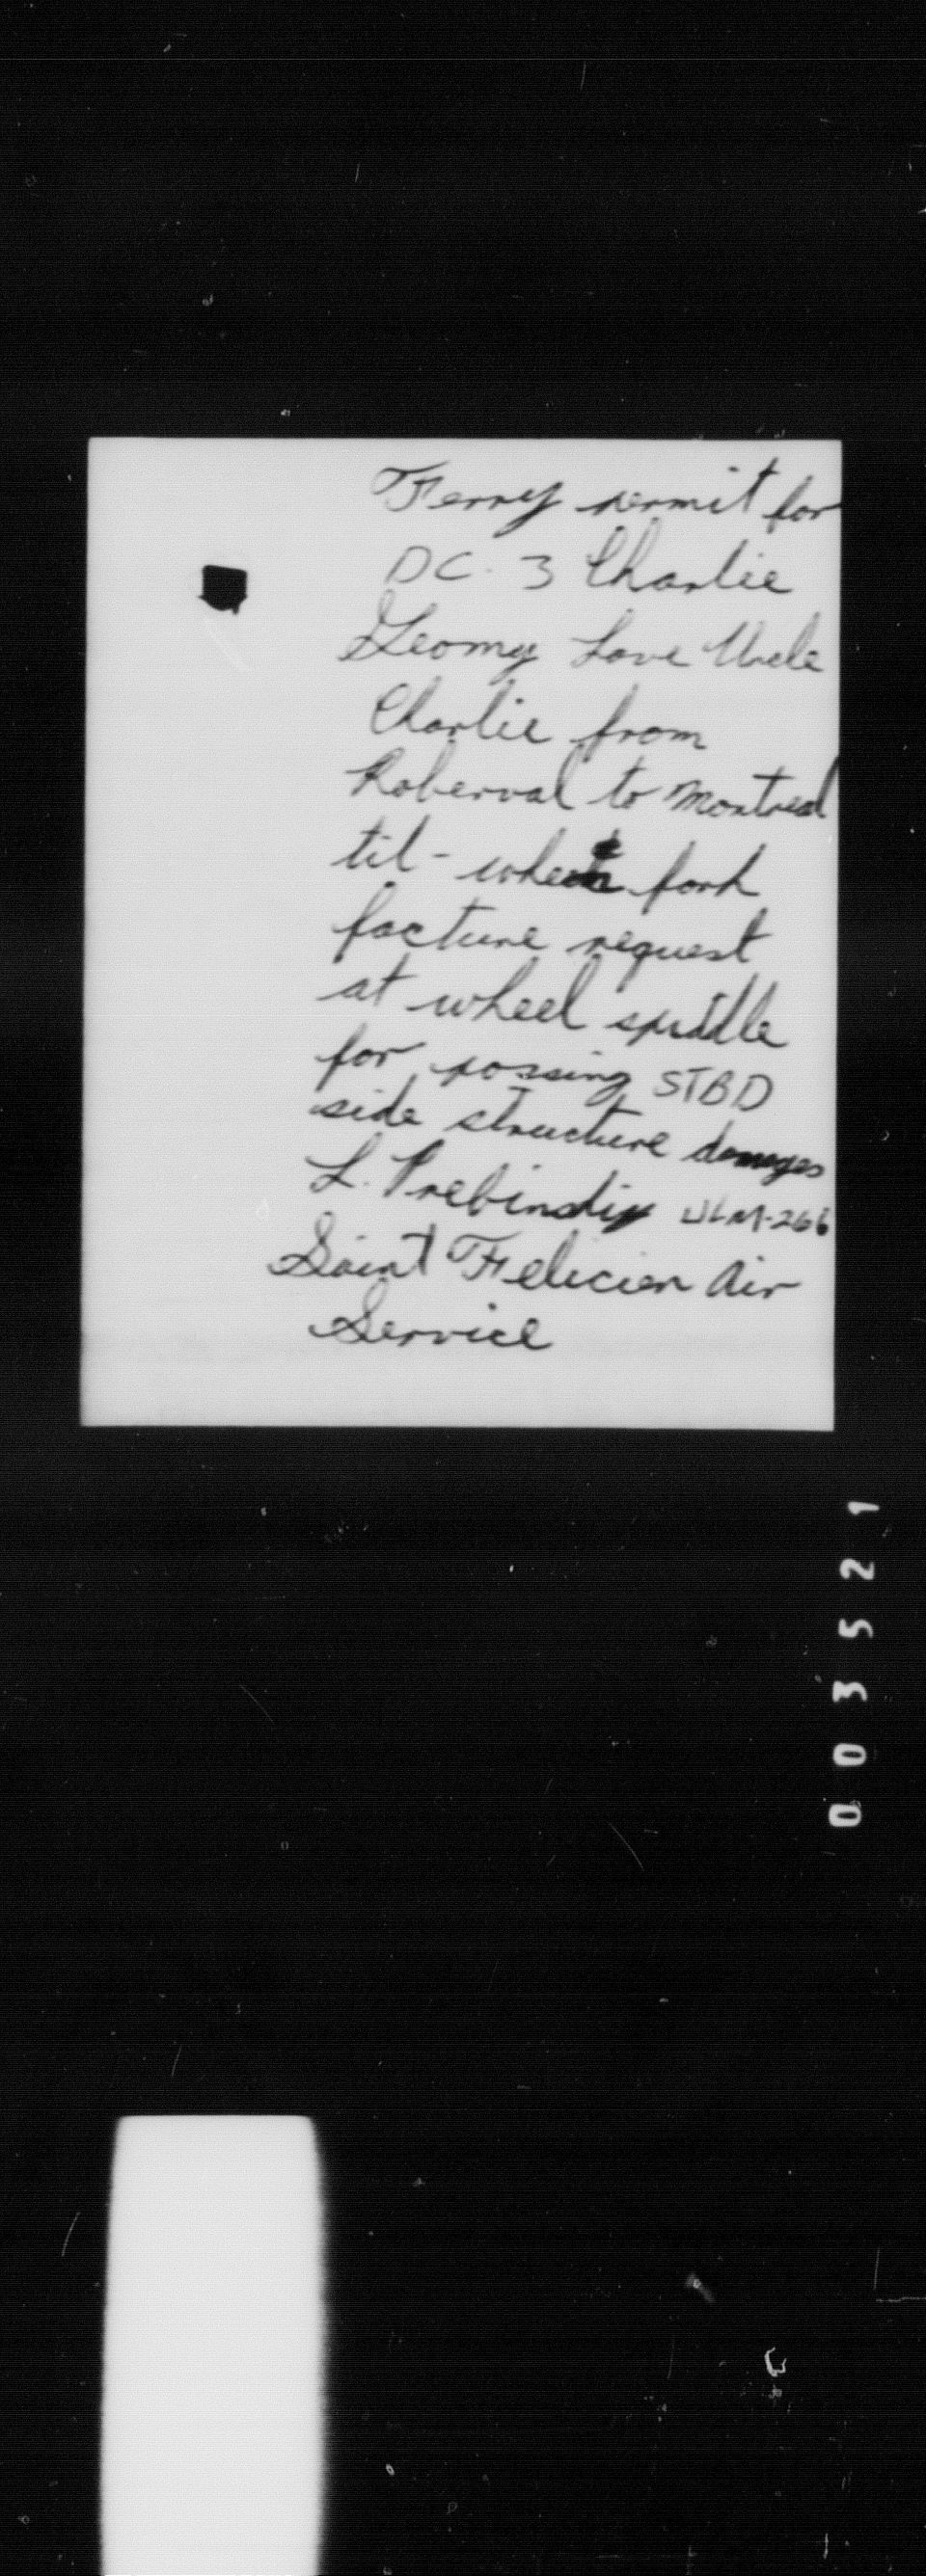 Ferry permit for
DC-3 Charlie
Geomy Love Uncle
Charlie from
Roberval to Montreal
til-wheel fork
facture request
at wheel spidle
for possing STBD
side structure damages
L. ULM-266
Saint Felicien Air
Service
003521